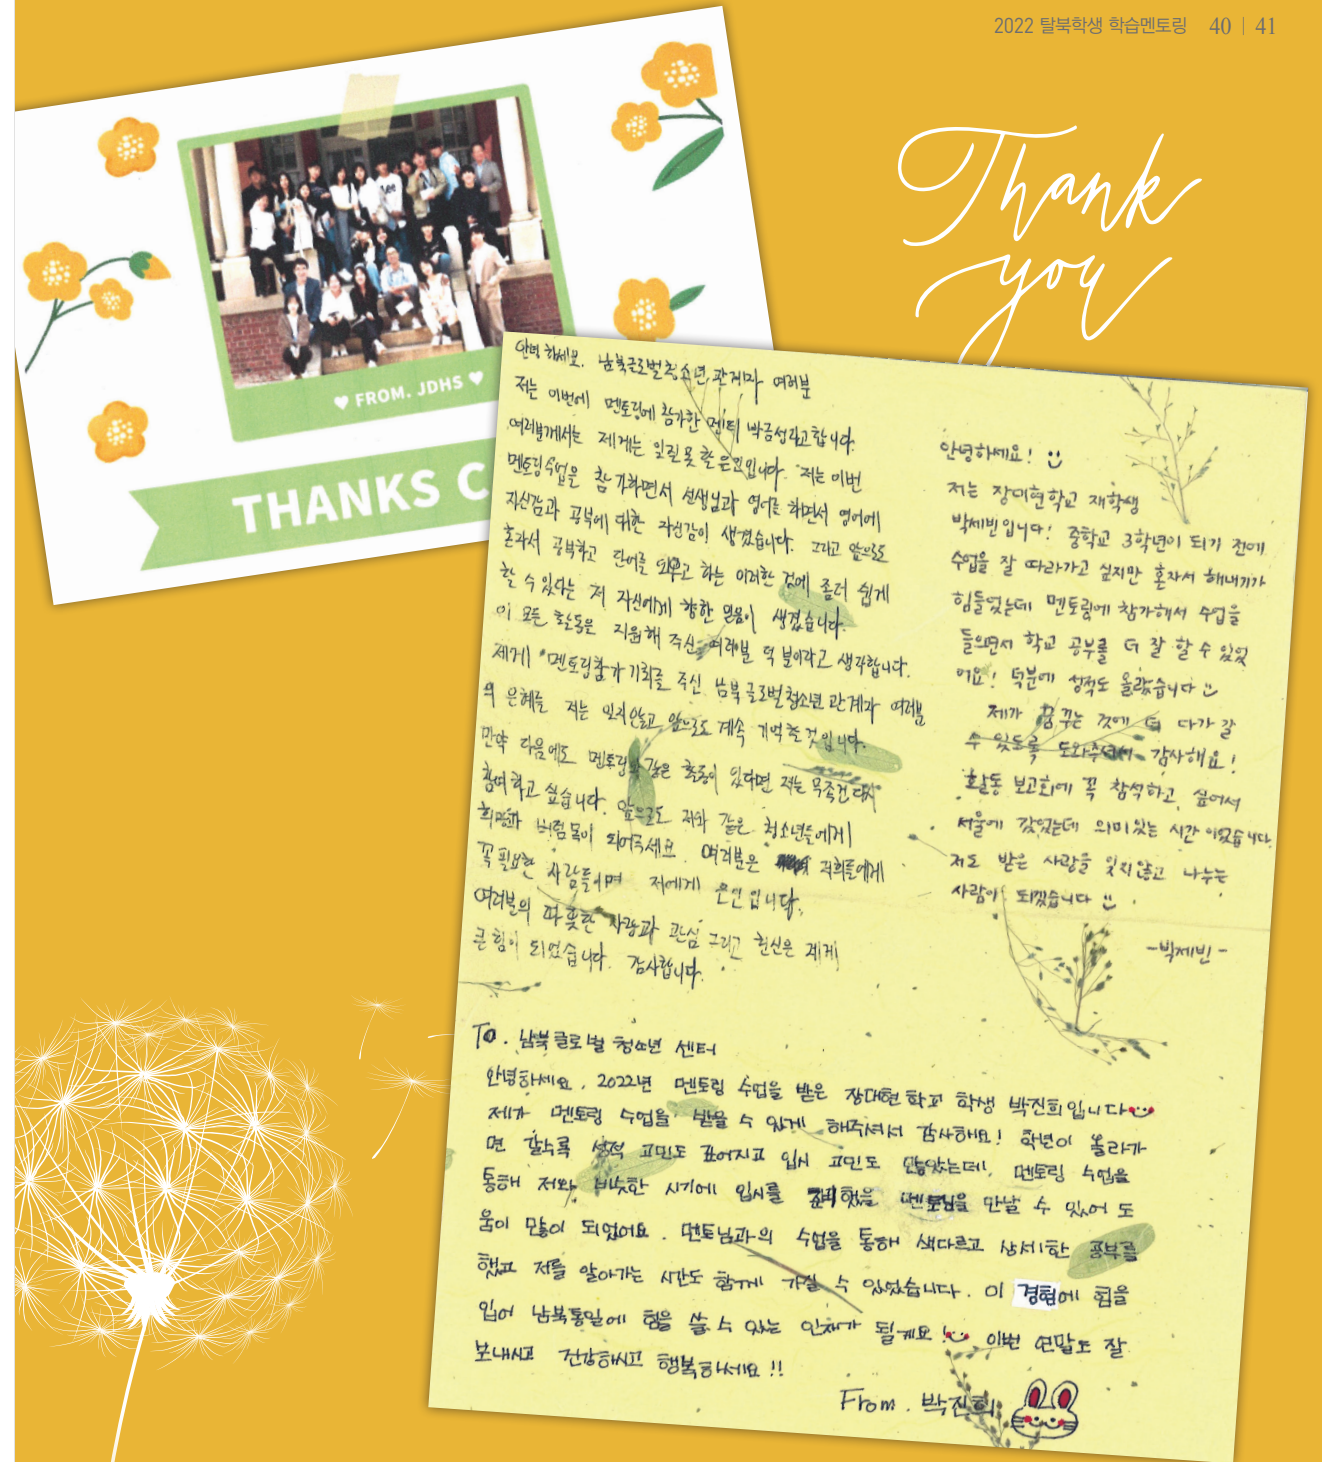 2022 탈북학생 학습멘토링 40 | 41
Thank
you
♥ FROM. JDHS ♥
THANKS C
안녕하세요. 남북글로벌청소년 관계자 여러분
저는 이번에 멘토링에 참가한 멘티 박금성라고합니다.
여러분께서는 제게는 잊을 못할 은인입니다. 저는 이번
멘토링수업을 참가하면서 선생님과 영어를 하면서 영어에
자신감과 공부에 대한 자신감이 생겼습니다. 그리고 앞으로도
혼자서 공부하고 단어를 외우고 하는 이러한 것에 좀더 쉽게
할 수 있다는 저 자신에게 향한 믿음이 생겼습니다.
이 모든 활동은 지원해 주신 여러분 덕분이라고 생각합니다.
제게 멘토링참가 기회를 주신 남북글로벌청소년 관계자 여러분
의 은혜를 저는 잊지않고 앞으로도 계속 기억할것입니다.
만약 다음에도 멘토링과 같은 활동이 있다면 저는 무족건 다시
참여하고 싶습니다. 앞으로도 저와 같은 청소년들에게
희망과 버팀목이 되어주세요. 여러분은 저희들에게
꼭 필요한 사람들이며 저에게 은인입니다.
여러분의 따뜻한 사랑과 관심 그리고 헌신은 제게
큰 힘이 되었습니다. 감사합니다.
안녕하세요!
저는 장대현학교 재학생
박세빈입니다! 중학교 3학년이 되기 전에
수업을 잘 따라가고 싶지만 혼자서 해내기가
힘들었는데 멘토링에 참가해서 수업을
들으면서 학교 공부를 더 잘 할 수 있었
어요! 덕분에 성적도 올랐습니다
제가 꿈꾸는 것에 더 다가갈
수 있도록 도와주셔서 감사해요!
활동 보고회에 꼭 참석하고 싶어서
서울에 갔었는데 의미있는 시간이었습니다.
저도 받은 사랑을 잊지않고 나누는
사람이 되겠습니다
-박세빈-
To. 남북글로벌 청소년 센터
안녕하세요. 2022년 멘토링 수업을 받은 장대현학교 학생 박진희입니다
제가 멘토링 수업을 받을 수 있게 해주셔서 감사해요! 학년이 올라가
면 갈수록 성적 고민도 깊어지고 입시 고민도 많았는데, 멘토링 수업을
통해 저와 비슷한 시기에 입시를 준비했을 멘토님을 만날 수 있어 도
움이 많이 되었어요. 멘토님과의 수업을 통해 색다르고 상세한 공부를
했고 저를 알아가는 시간도 함께 가질 수 있었습니다. 이 경험에 힘을
입어 남북통일에 힘을 쓸 수 있는 인재가 될게요! 이번 연말도 잘
보내시고 건강하시고 행복하세요!!
From. 박진희